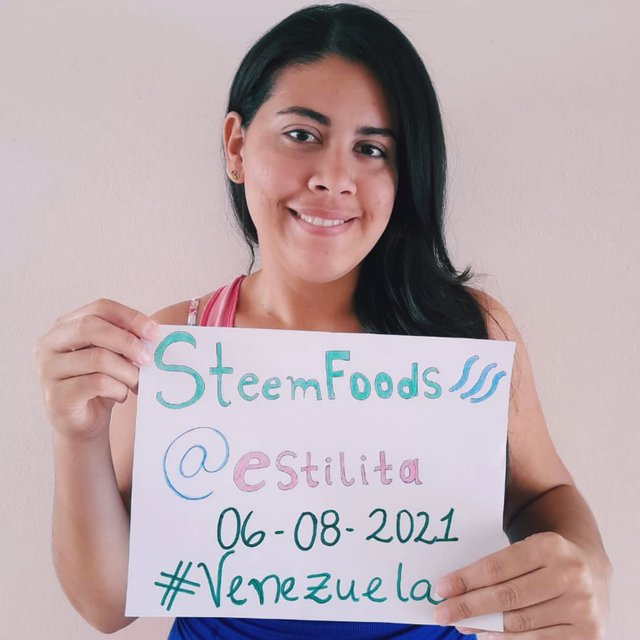 SteemFoods
@estilita
06-08-2021
#Venezuela